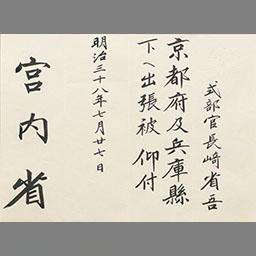 式部官長﨑省吾
京都府及兵庫縣
下へ出張被 仰付
明治三十八年七月廿七日
宮内省